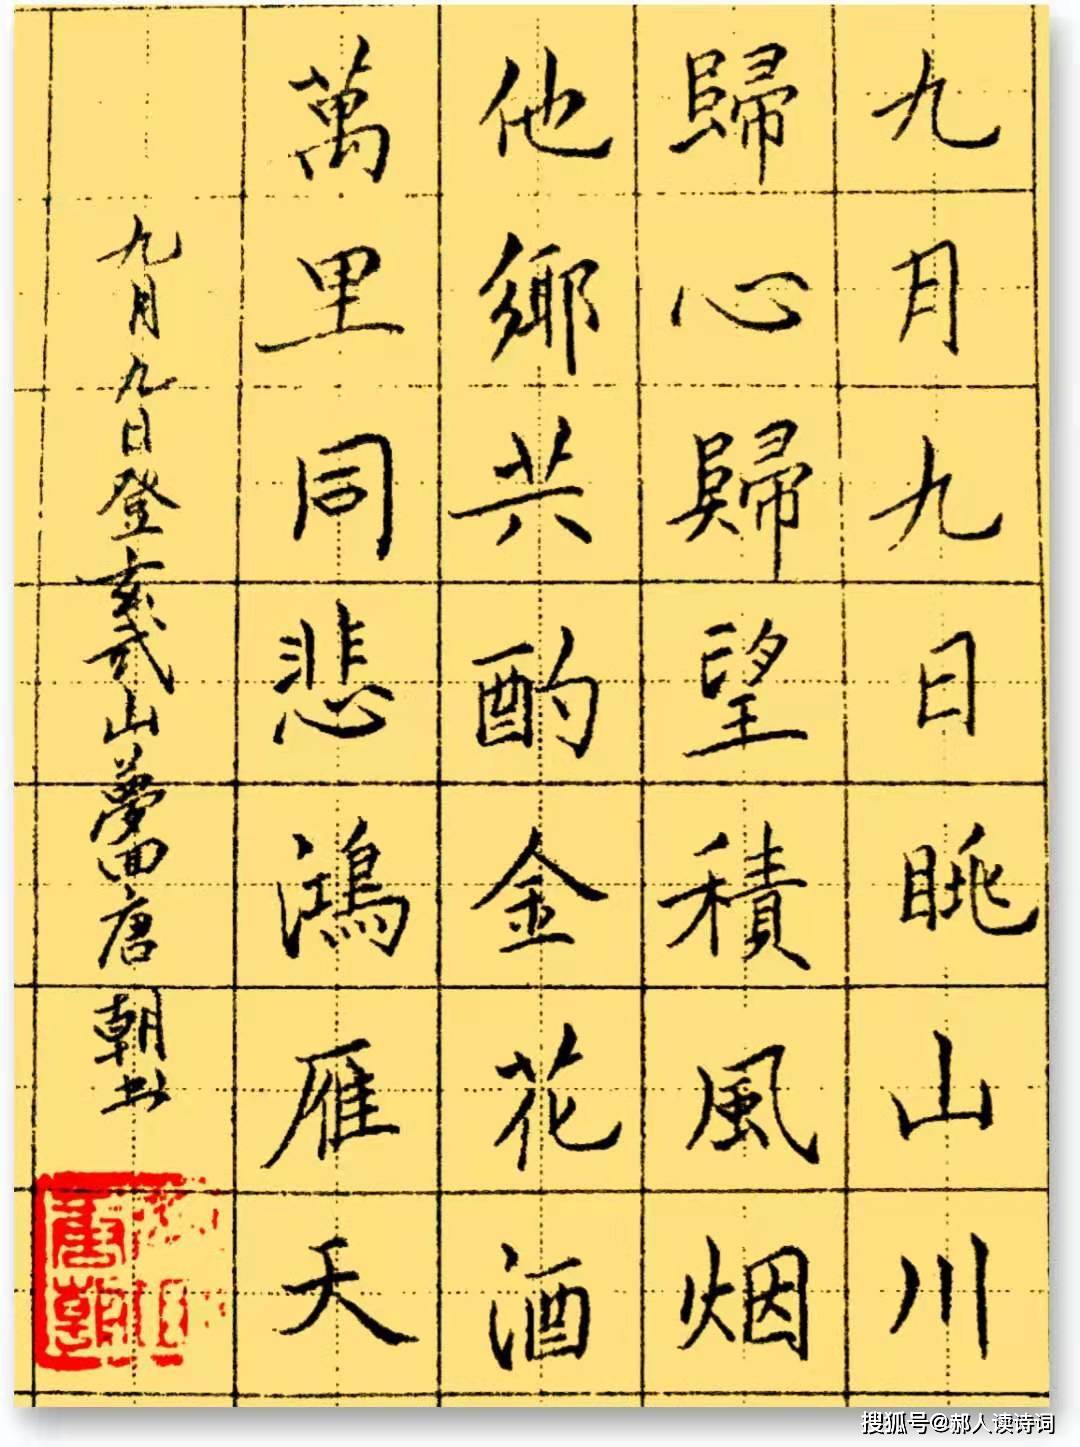 九月九日眺山川
歸心歸望積風烟
他鄉共酌金花酒
萬里同悲鴻雁天
九月九日登玄武山夢回唐朝书
唐朝
搜狐号@郝人读诗词